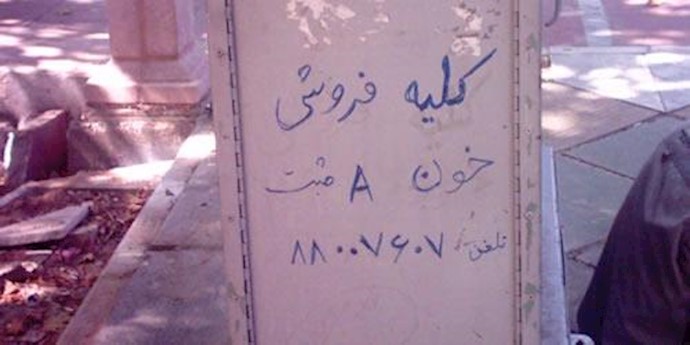 کلیه فروشی
خون A مثبت
تلفن: ۸۸۰۰۷۶۰۷